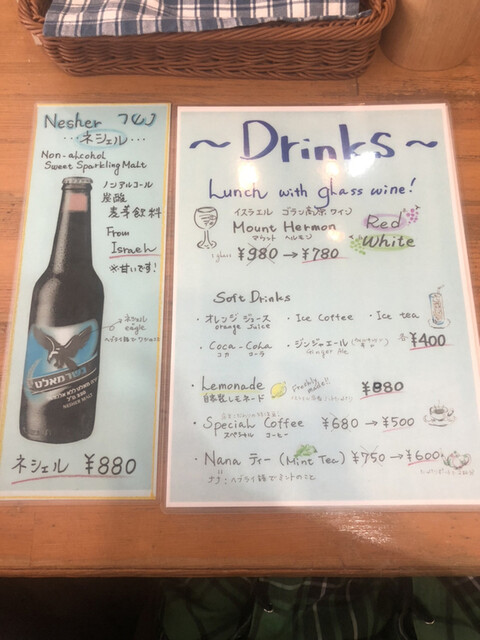 Nesher נשר
…ネシェル…
Non-alcohol
Sweet Sparkling Malt
ノンアルコール
炭酸
麦芽飲料
From
Israel
※甘いです!
ネシェル
eagle
נשר מאלט
ネシェル ¥880
~Drinks~
Lunch with glass wine!
イスラエル ゴラン高原 ワイン
Mount Hermon
マウント ヘルモン
Red
White
1 glass ¥980→¥780
Soft Drinks
・オレンジ ジュース ・Ice Coffee ・Ice tea
orange juice
・Coca-Cola ・ジンジャーエール
コカ コーラ Ginger Ale
各¥400
・Lemonade Freshly made!! ¥880
自家製レモネード
・Special Coffee ¥680→¥500
スペシャル コーヒー
・Nana ティー (Mint Tea) ¥750→¥600
ナナ:ヘブライ語でミントのこと